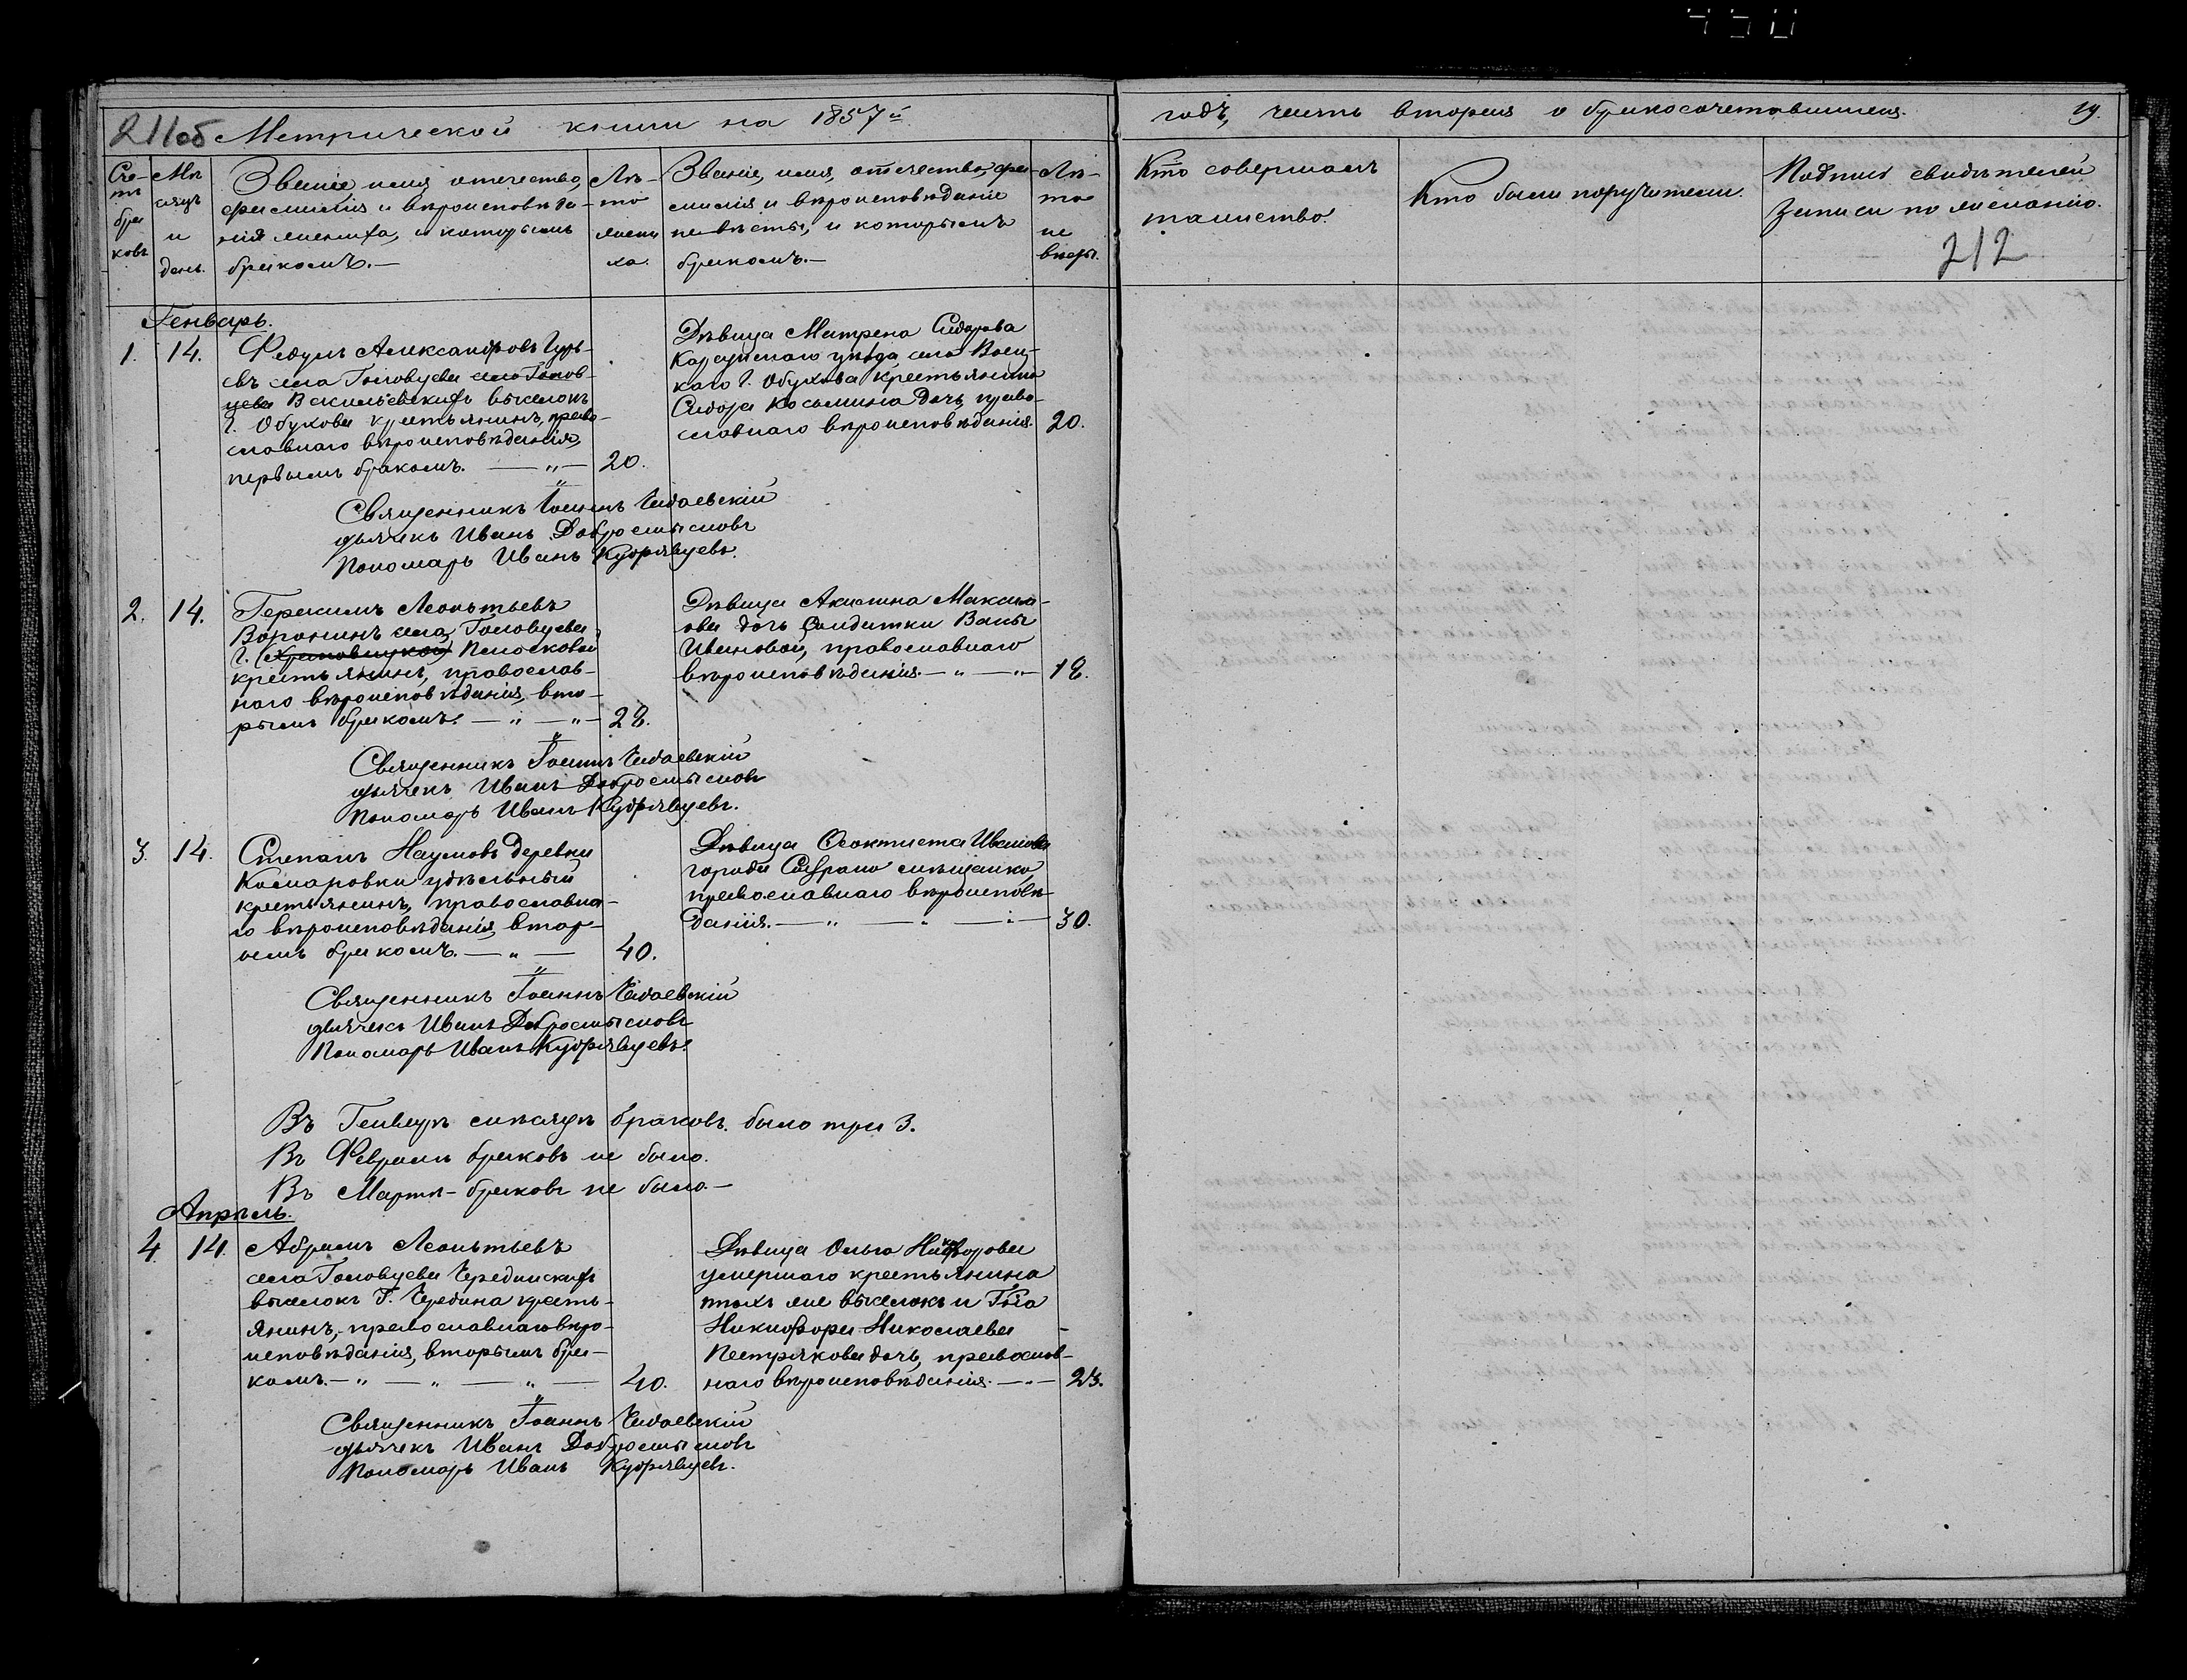 211об Метрической книги на 1857й
годъ, часть вторая о бракосочетавшихся. 19.
Сче-
тъ
бра
ковъ
Мѣ
сяцъ
и
день.
Званіе, имя, отечество,
фамилія и вѣроисповѣда-
нія жениха, и которымъ
бракомъ.—
Лѣ-
то
жени
ха.
Званіе, имя, отечество, фа-
милія и вѣроисповѣданіе
невѣсты, и которымъ
бракомъ.—
Лѣ-
то
не
вѣсты.
Кто совершалъ
таинство.
Кто были поручители.
Подписи свидѣтелей
записи по желанію.
212
Генварь.
1. 14. Федулъ Александровъ Гурь-
евъ села Головцева село Голов-
цева Васильевскихъ выселокъ
Г. Обухова крестьянинъ, право-
славнаго вѣроисповѣданія,
первымъ бракомъ. — „ — 20.
Дѣвица Матрена Сидорова
Карсунскаго уѣзда села Воец-
каго Г. Обухова крестьянина
Сидора Косьмина дочь, право-
славнаго вѣроисповѣданія. 20.
Священникъ Іоаннъ Чедаевскій
дьячекъ Иванъ Добросмысловъ
Пономарь Иванъ Кудрявцевъ.
2. 14. Герасимъ Леонтьевъ
Воронинъ села Головцева
Г.
крестьянинъ, православ-
наго вѣроисповѣданія, вто-
рымъ бракомъ. — „ — „ — 28.
Дѣвица Акилина Макси-
ова дочь солдатки
Ивановой, православнаго
вѣроисповѣданія. — „ — „ — 18.
Священникъ Іоаннъ Чедаевскій
дьячекъ Иванъ Добросмысловъ
Пономарь Иванъ Кудрявцевъ.
3. 14. Степанъ Наумовъ деревни
Комаровки удѣльный
крестьянинъ, православна-
го вѣроисповѣданія, втор-
ымъ бракомъ. — „ — 40.
Дѣвица Феоктиста Иванова
города мѣщанка,
православнаго вѣроисповѣ-
данія. — „ — „ — „ — 30.
Священникъ Іоаннъ Чедаевскій
дьячекъ Иванъ Добросмысловъ
Пономарь Иванъ Кудрявцевъ.
Въ Генварѣ мѣсяцѣ браковъ было три 3.
Въ Февралѣ браковъ не было.
Въ Мартѣ - браковъ не было.—
Апрѣль.
4. 14. Абрамъ Леонтьевъ
села Головцева Чрединскихъ
выселокъ Г. Чередина кресть-
янинъ, православнаго вѣро-
исповѣданія, вторымъ бра-
комъ. — „ — „ — „ — 40.
Дѣвица Ольга Никифорова
умершаго крестьянина
тѣхъ же выселокъ и Г-на
Никифора Николаева
Пестрякова дочь, православ-
наго вѣроисповѣданія. — „ — 23.
Священникъ Іоаннъ Чедаевскій
дьячекъ Иванъ Добросмысловъ
Пономарь Иванъ Кудрявцевъ.